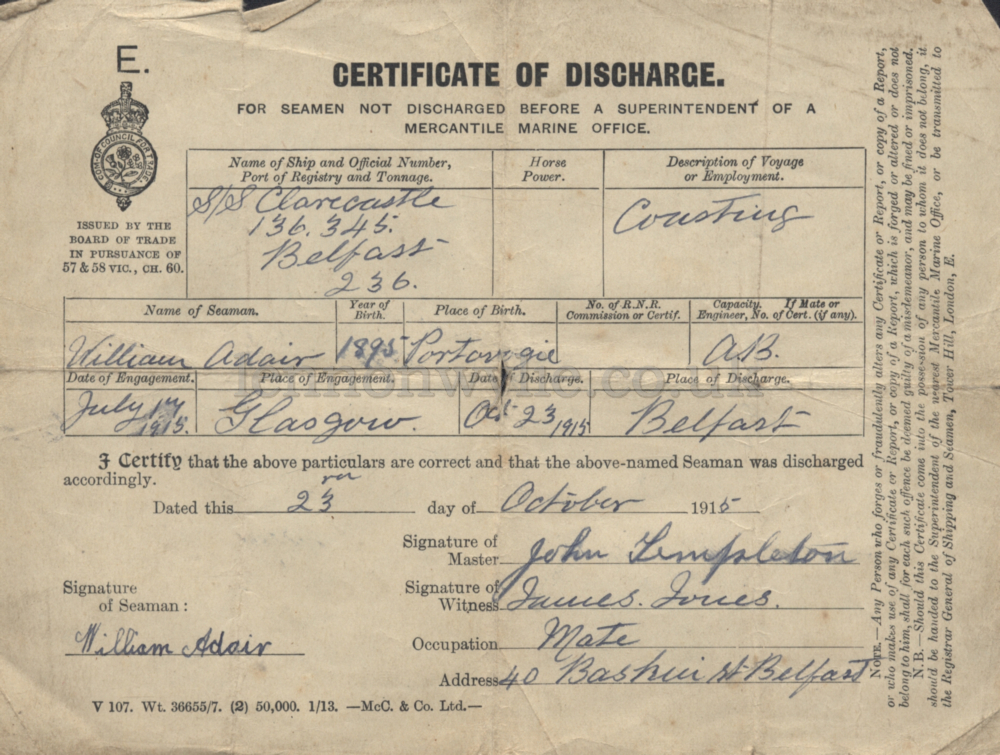 E.
CERTIFICATE OF DISCHARGE.
FOR SEAMEN NOT DISCHARGED BEFORE A SUPERINTENDENT OF A
MERCANTILE MARINE OFFICE.
COM. OF COUNCIL FOR TRADE
ISSUED BY THE
BOARD OF TRADE
IN PURSUANCE OF
57 & 58 VIC., CH. 60.
Name of Ship and Official Number,
Port of Registry and Tonnage.
Horse
Power.
Description of Voyage
or Employment.
S/S Clarecastle
136.345.
Belfast
236.
Coasting
Name of Seaman.
Year of
Birth.
Place of Birth.
No. of R.N.R.
Commission or Certif.
Capacity. If Mate or
Engineer, No. of Cert. (if any).
William Adair
1895
Portavogie
A.B.
Date of Engagement.
Place of Engagement.
Date of Discharge.
Place of Discharge.
July 17
1915.
Glasgow.
Oct 23 1915
Belfast
I Certify that the above particulars are correct and that the above-named Seaman was discharged
accordingly.
Dated this 23 day of October 1915
Signature of
Master John Templeton
Signature of
Witness James. Jones.
Occupation Mate
Address 40 St Belfast
Signature
of Seaman :
William Adair
V 107. Wt. 36655/7. (2) 50,000. 1/13. —McC. & Co. Ltd.—
NOTE.—Any Person who forges or fraudulently alters any Certificate or Report, or copy of a Report,
or who makes use of any Certificate or Report, or copy of a Report, which is forged or altered or does not
belong to him, shall for each such offence be deemed guilty of a misdemeanor, and may be fined or imprisoned.
N.B.—Should this Certificate come into the possession of any person to whom it does not belong, it
should be handed to the Superintendent of the nearest Mercantile Marine Office, or be transmitted to
the Registrar General of Shipping and Seamen, Tower Hill, London, E.